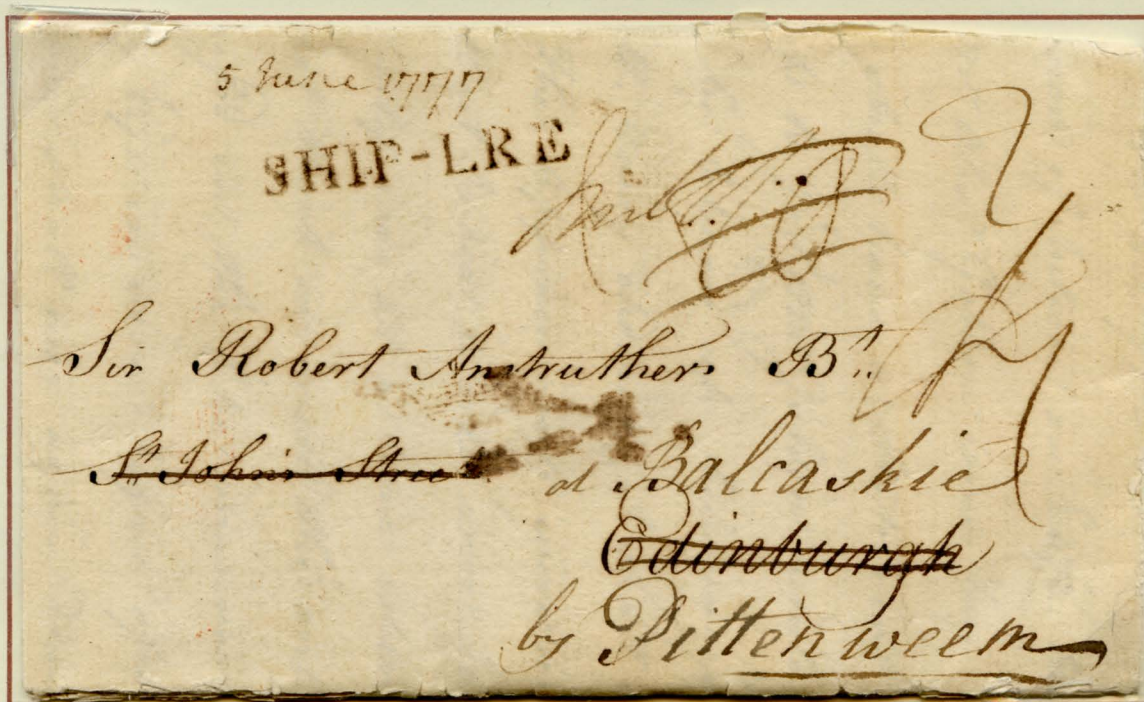 5 June 1777
SHIP-LRE
Sir Robert Anstruther Bt.
St John's Street at Balcaskie
Edinburgh
by Pittenweem